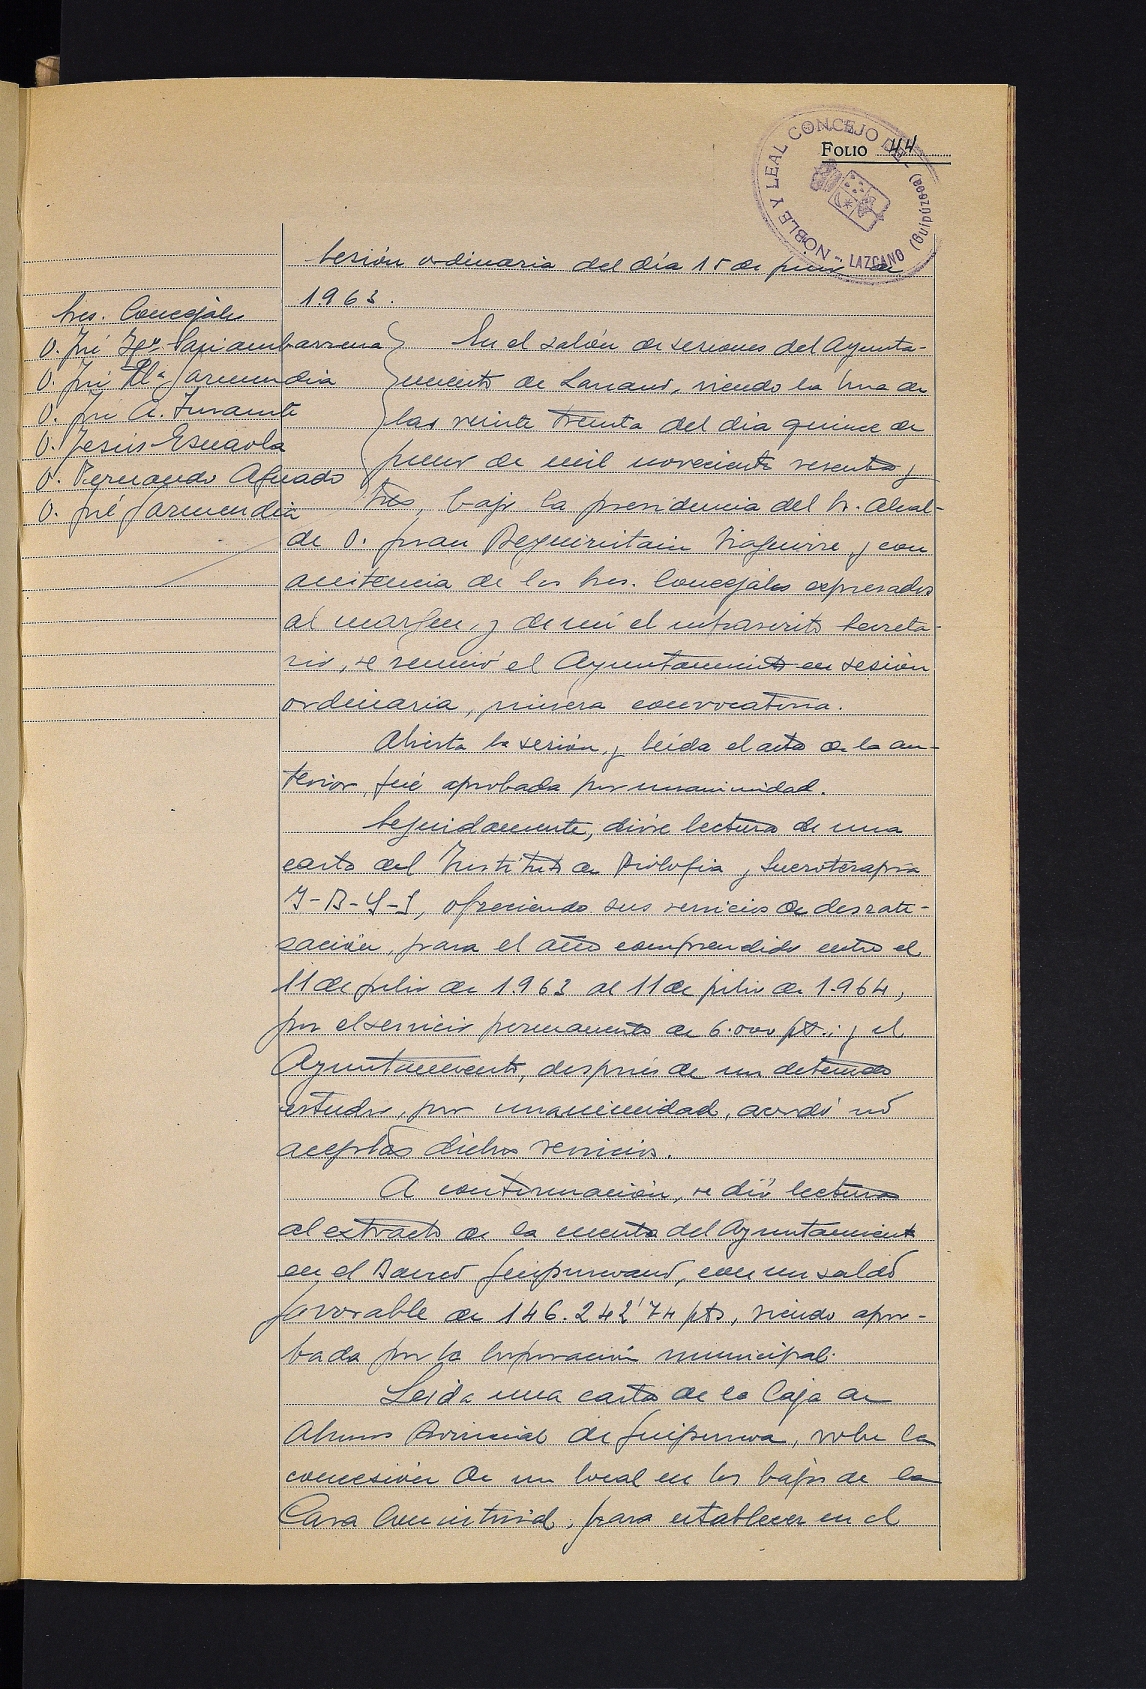 FOLIO 44
NOBLE Y LEAL CONCEJO DE - LAZCANO (Guipúzcoa)
Sesión ordinaria del día 15 de junio de
1963.
Sres. Concejales
D. José Igº
D. José Mª Garmendia
D. José A. Insausti
D. Jesús Esnaola
D. Fernando Aguado
D. José Garmendia
En el salón de sesiones del Ayunta-
miento de Lazcano, siendo la hora de
las veinte treinta del día quince de
junio de mil novecientos sesenta y
tres, bajo la presidencia del Sr. Alcal-
de D. Juan Beguiristain y con
asistencia de los Sres. Concejales expresados
al margen, y de mí el infrascrito Secreta-
rio, se reunió el Ayuntamiento en sesión
ordinaria, primera convocatoria.
Abierta la sesión, y leída el acta de la an-
terior, fué aprobada por unanimidad.
Seguidamente, dióse lectura de una
carta del Instituto de Biología y Sueroterapia
I-B-Y-S, ofreciendo sus servicios de desrati-
zación, para el año comprendido entre el
11 de julio de 1.963 al 11 de julio de 1.964,
por el servicio permanente de 6.000 pts.; y el
Ayuntamiento, después de un detenido
estudio, por unanimidad, acordó nó
aceptar dichos servicios.
A continuación, se dió lectura
al extracto de la cuenta del Ayuntamiento
en el Banco Guipuzcoano, con un saldo
favorable de 146.242'74 pts, siendo apro-
bada por la Corporación municipal.
Leída una carta de la Caja de
Ahorros Provincial de Guipuzcoa, sobre la
concesión de un local en los bajos de la
Casa Consistorial, para establecer en el